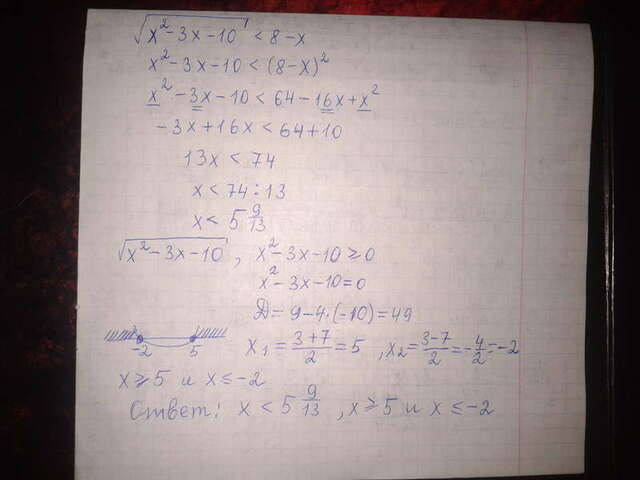 √(x² - 3x - 10) < 8 - x
x² - 3x - 10 < (8 - x)²
x² - 3x - 10 < 64 - 16x + x²
-3x + 16x < 64 + 10
13x < 74
x < 74 : 13
x < 5 9/13
√(x² - 3x - 10) , x² - 3x - 10 ≥ 0
x² - 3x - 10 = 0
Д = 9 - 4 · (-10) = 49
-2 5 x₁ = (3+7)/2 = 5 , x₂ = (3-7)/2 = -4/2 = -2
x ≥ 5 и x ≤ -2
Ответ: x < 5 9/13 , x ≥ 5 и x ≤ -2